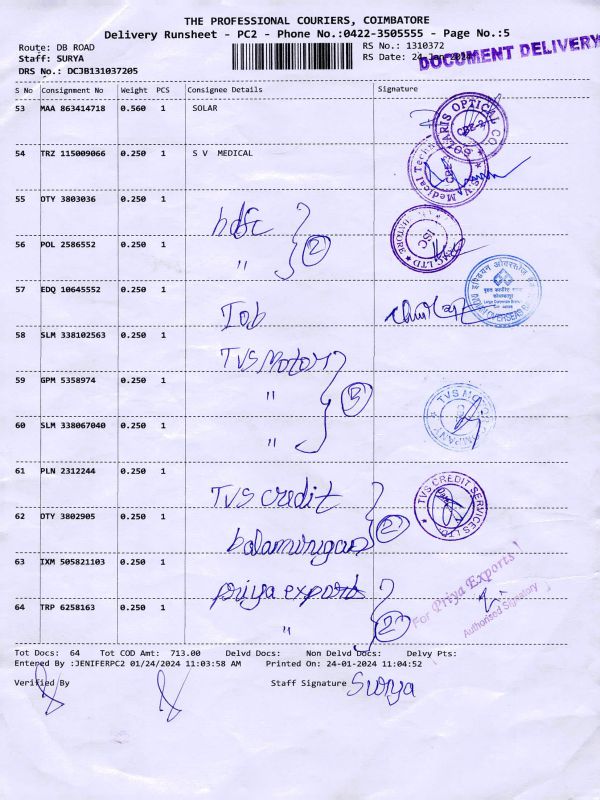 THE PROFESSIONAL COURIERS, COIMBATORE
Delivery Runsheet - PC2 - Phone No.:0422-3505555 - Page No.:5
Route: DB ROAD
RS No.: 1310372
DOCUMENT DELIVERY
Staff: SURYA
RS Date: 24-Jan-2024
DRS No.: DCJB131037205
S No Consignment No Weight PCS Consignee Details Signature
53 MAA 863414718 0.560 1 SOLAR
SOLARIS OPTICAL CO
CBE-2
54 TRZ 115009066 0.250 1 S V MEDICAL
S.V. Medical Techn
55 DTY 3803036 0.250 1 hdfc
2
56 POL 2586552 0.250 1 "
LTD
57 EDQ 10645552 0.250 1 Iob
58 SLM 338102563 0.250 1 TVS Motor
3
59 GPM 5358974 0.250 1 "
TVS MOTOR COMPANY
60 SLM 338067040 0.250 1 "
61 PLN 2312244 0.250 1 TVS credit
2
TVS CREDIT SERVICES LTD
62 DTY 3802905 0.250 1 balamurugan
63 IXM 505821103 0.250 1 priya exports
2
For Priya Exports
Authorised Signatory
64 TRP 6258163 0.250 1 "
Tot Docs: 64 Tot COD Amt: 713.00 Delvd Docs: Non Delvd Docs: Delvy Pts:
Entered By :JENIFERPC2 01/24/2024 11:03:58 AM Printed On: 24-01-2024 11:04:52
Verified By Staff Signature Surya